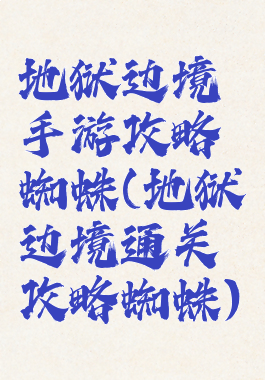 地狱边境
手游攻略
蜘蛛(地狱
边境通关
攻略蜘蛛)